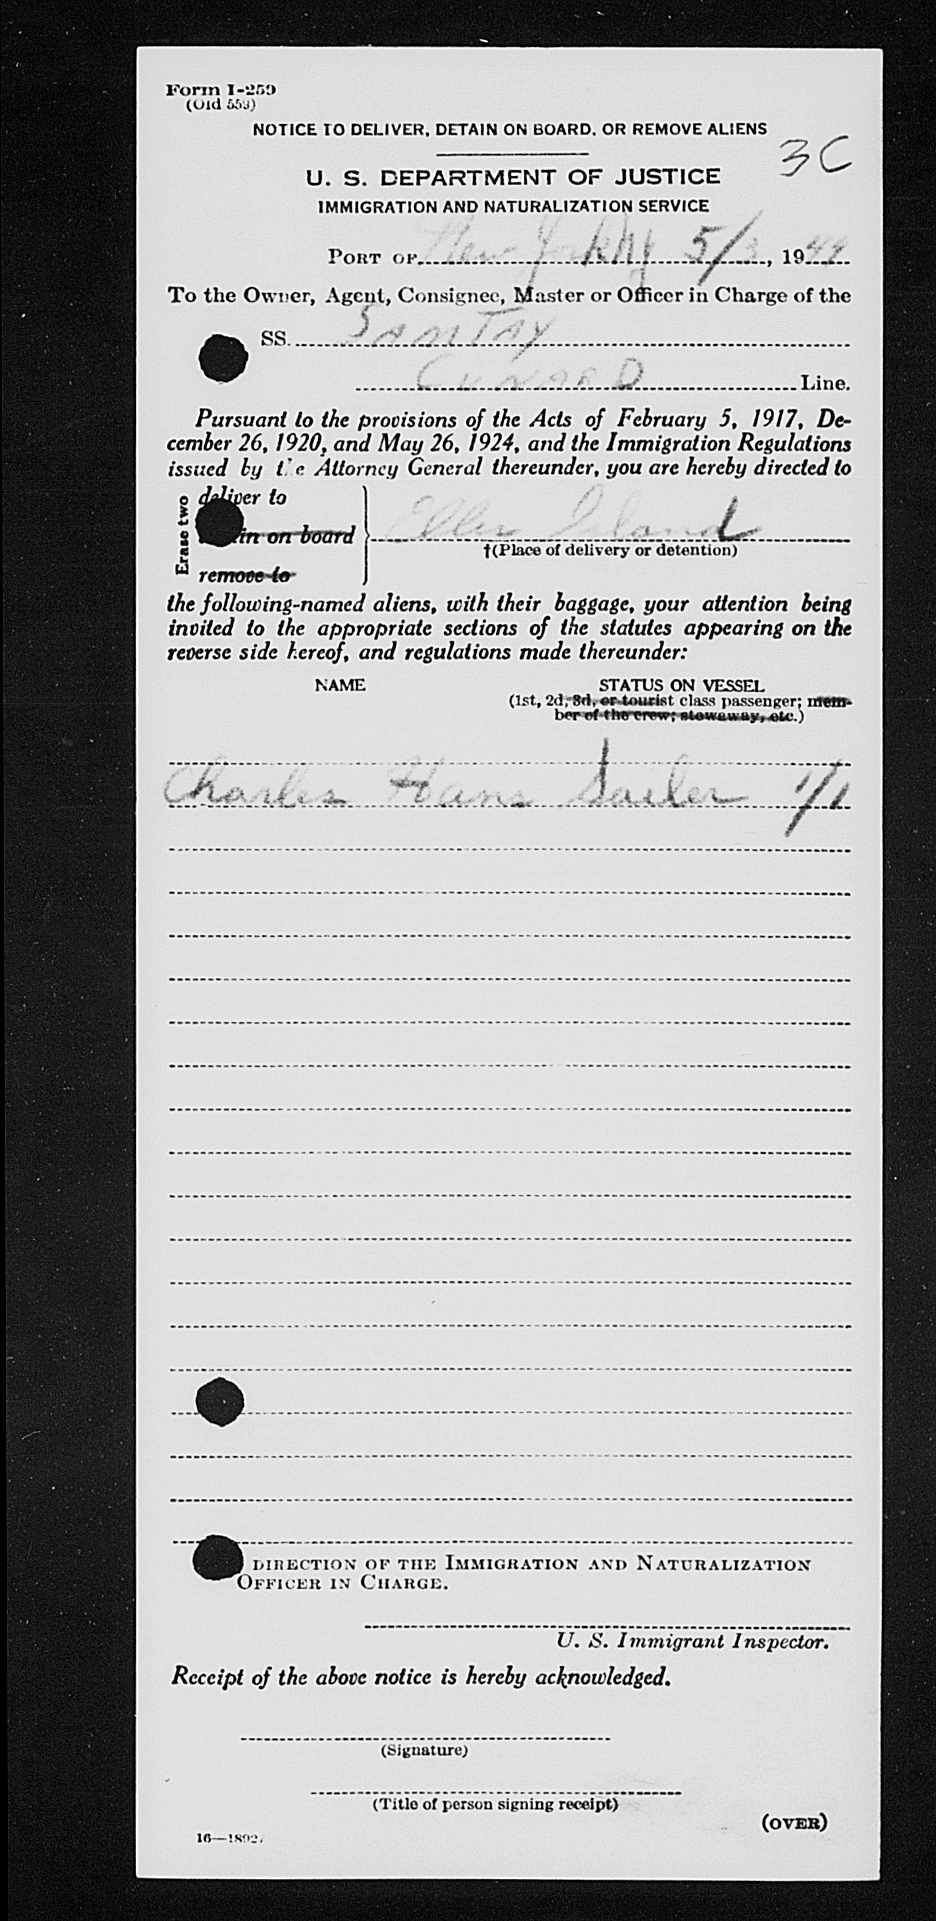 Form I-259
(Old 559)
NOTICE TO DELIVER, DETAIN ON BOARD, OR REMOVE ALIENS
3C
U. S. DEPARTMENT OF JUSTICE
IMMIGRATION AND NATURALIZATION SERVICE
PORT OF New York NY 5/3, 1944
To the Owner, Agent, Consignee, Master or Officer in Charge of the
SS. SAMTAY
CUNARD Line.
Pursuant to the provisions of the Acts of February 5, 1917, De-
cember 26, 1920, and May 26, 1924, and the Immigration Regulations
issued by the Attorney General thereunder, you are hereby directed to
Erase two
deliver to
in on board
remove to
Ellis Island
†(Place of delivery or detention)
the following-named aliens, with their baggage, your attention being
invited to the appropriate sections of the statutes appearing on the
reverse side hereof, and regulations made thereunder:
NAME STATUS ON VESSEL
(1st, 2d, 3d, or tourist class passenger; mem-
ber of the crew; stowaway, etc.)
Charles Hans Sailer 1/1
DIRECTION OF THE IMMIGRATION AND NATURALIZATION
OFFICER IN CHARGE.
U. S. Immigrant Inspector.
Receipt of the above notice is hereby acknowledged.
(Signature)
(Title of person signing receipt)
(OVER)